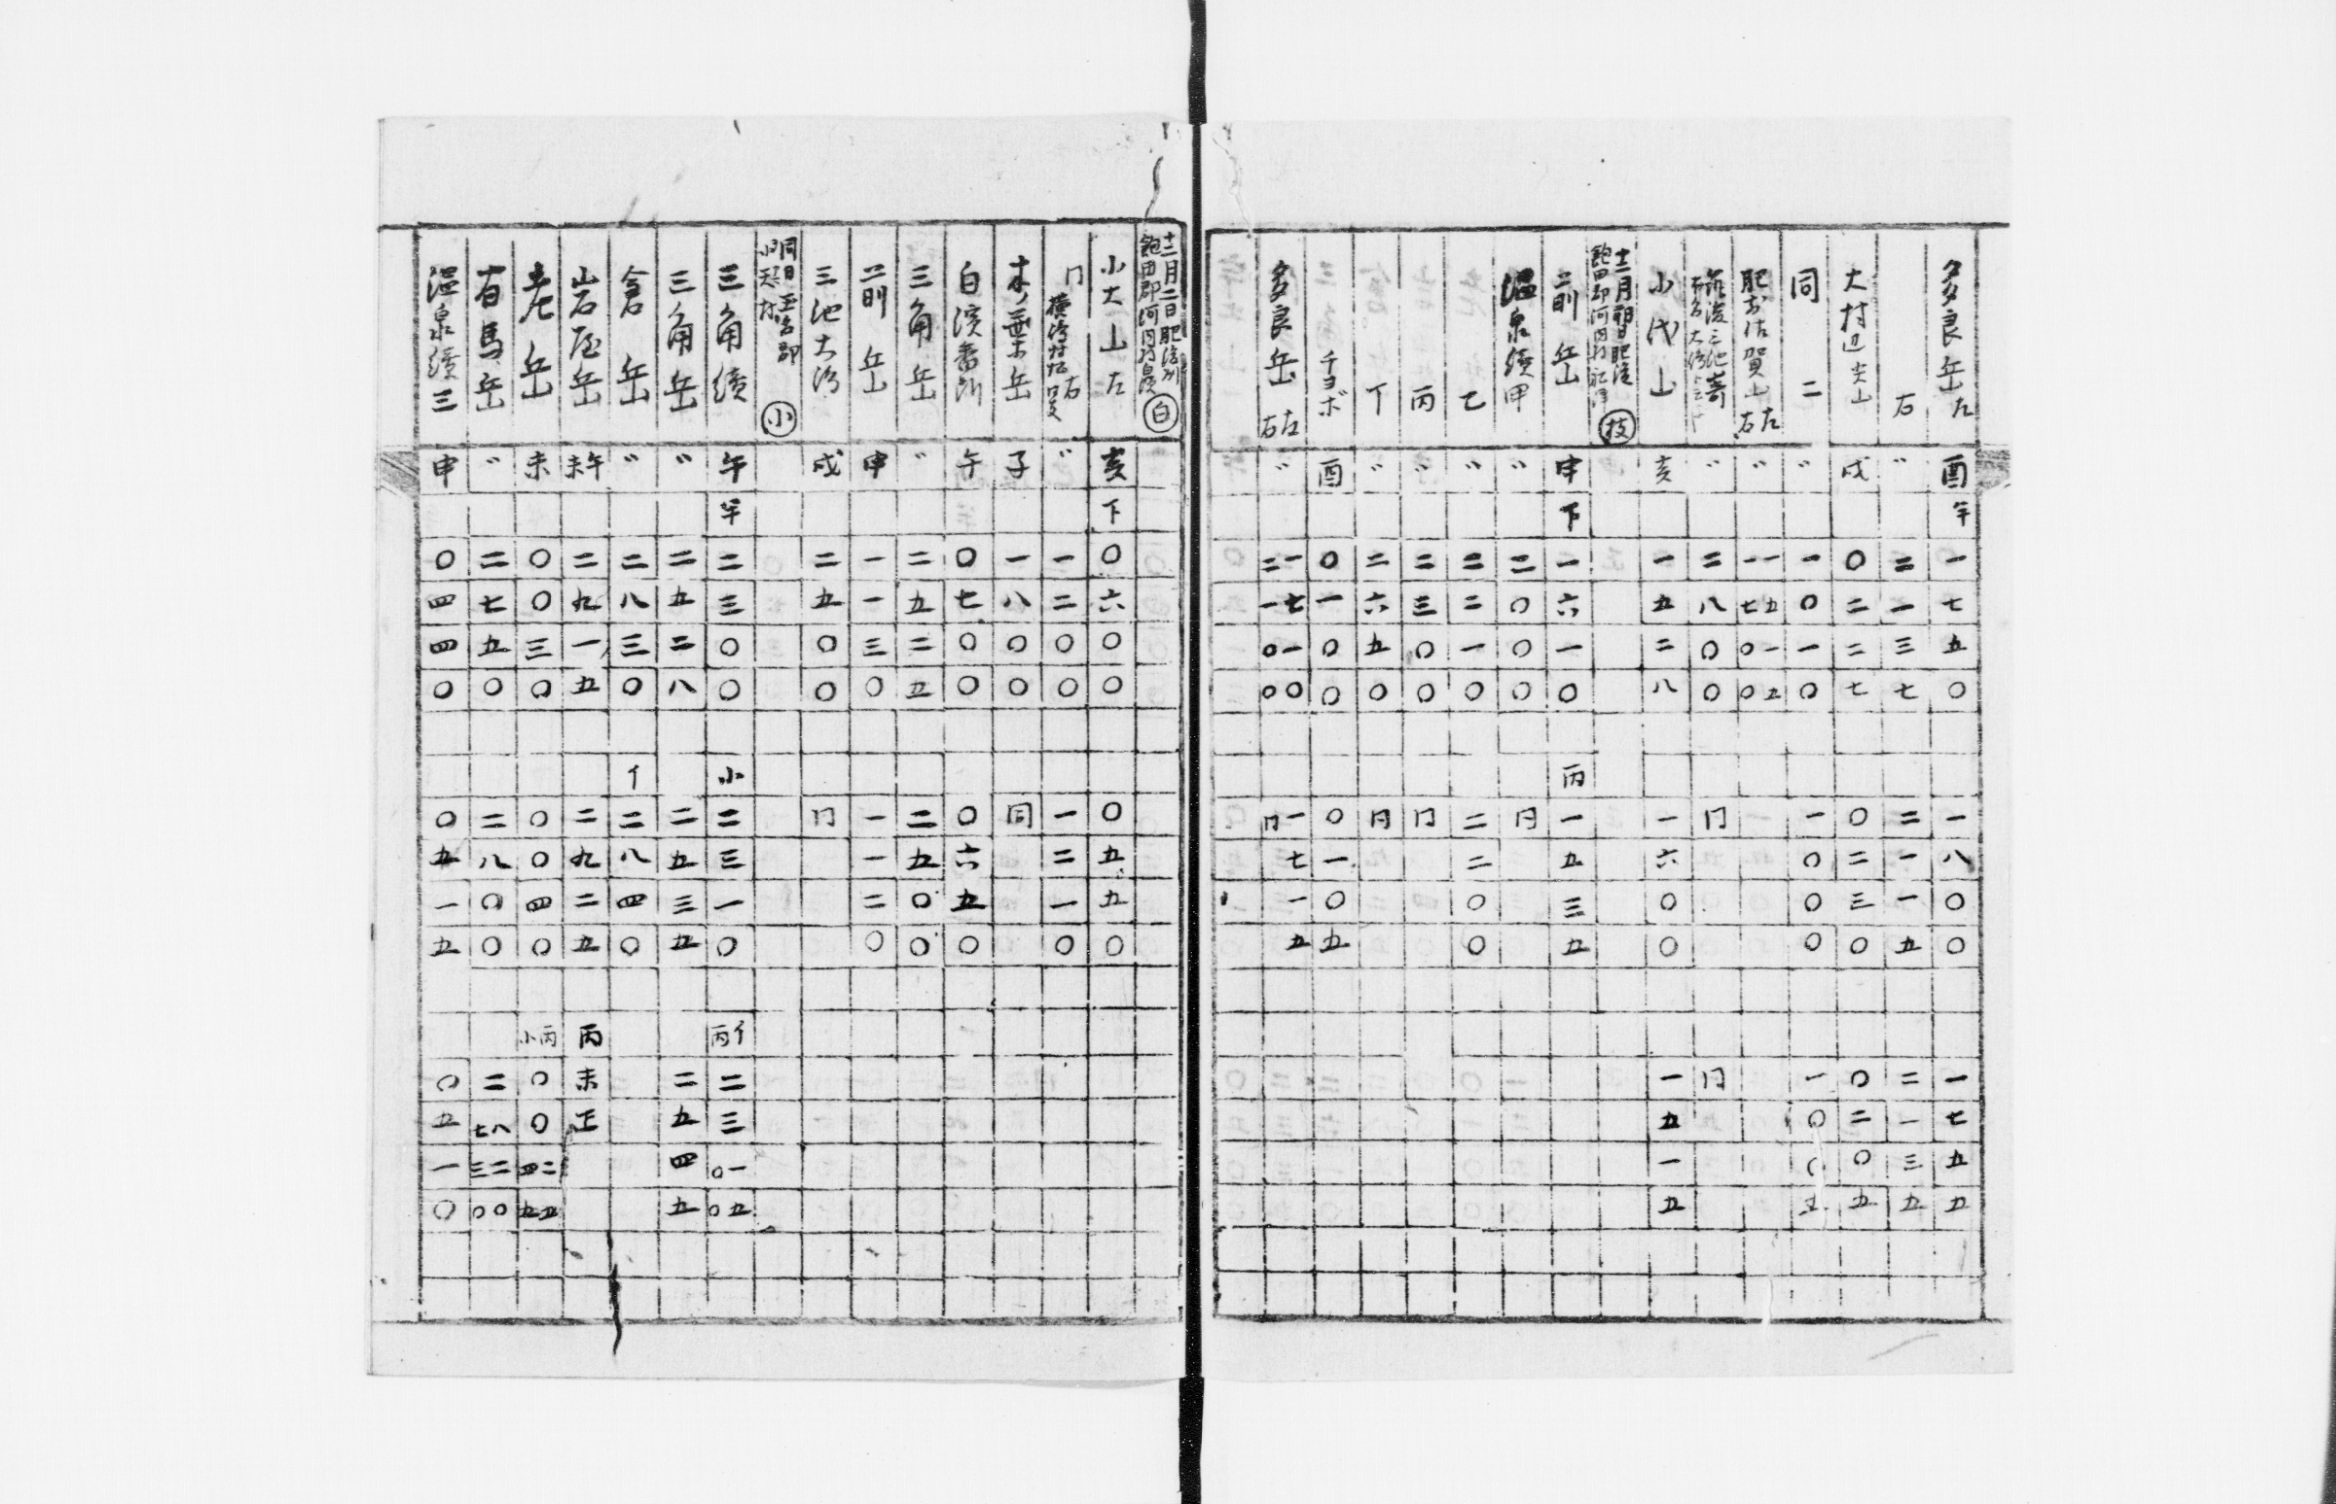 多良岳左 酉 午 一七五〇 一八〇〇 一七五五
右 〃 二一三七 二一一五 二一三五
大村辺尖山 戌 〇二二七 〇二三〇 〇二〇五
同 二 〃 一〇一〇 一〇〇〇 一〇〇五
肥前佐賀山 左右 〃 一五一五 一七〇〇
筑後三池嵜 〃 二八〇〇 同 同
小代山 亥 一五二八 一六〇〇 一五一五
十二月朔日肥後
飽田郡河内村 技
二則岳 申 下 一六一〇 丙 一五三五
温泉續甲 〃 二〇〇〇 同
乙 〃 二二一〇 二二〇〇
丙 〃 二三〇〇 同
丁 〃 二六五〇 同
チヨボ 酉 〇一〇〇 〇一〇五
多良岳 左右 〃 一七一〇 二一〇〇 一七一五 同
十二月二日肥後州
飽田郡河内村白濱 白
小大山左 亥 下 〇六〇〇 〇五五〇
同 右 〃 一二〇〇 一二一〇
木葉岳 子 一八〇〇 同
白濱番所 午 〇七〇〇 〇六五〇
三角岳 〃 二五二五 二五〇〇
二則岳 申 一一三〇 一一二〇
三池大 戌 二五〇〇 同
同日玉名郡
小天村 小
三角續 午 午 二三〇〇 小 二三一〇 丁丙 二三一五 〇〇
三角岳 〃 二五二八 二五三五 二五四五
倉岳 〃 二八三〇 丁 二八四〇
岩屋岳 午未 二九一五 二九二五 丙 未正
老岳 未 〇〇三〇 〇〇四〇 丙小 〇〇二五 四五
有馬岳 〃 二七五〇 二八〇〇 二八二〇 七三〇
温泉續三 申 〇四四〇 〇五一五 〇五一〇